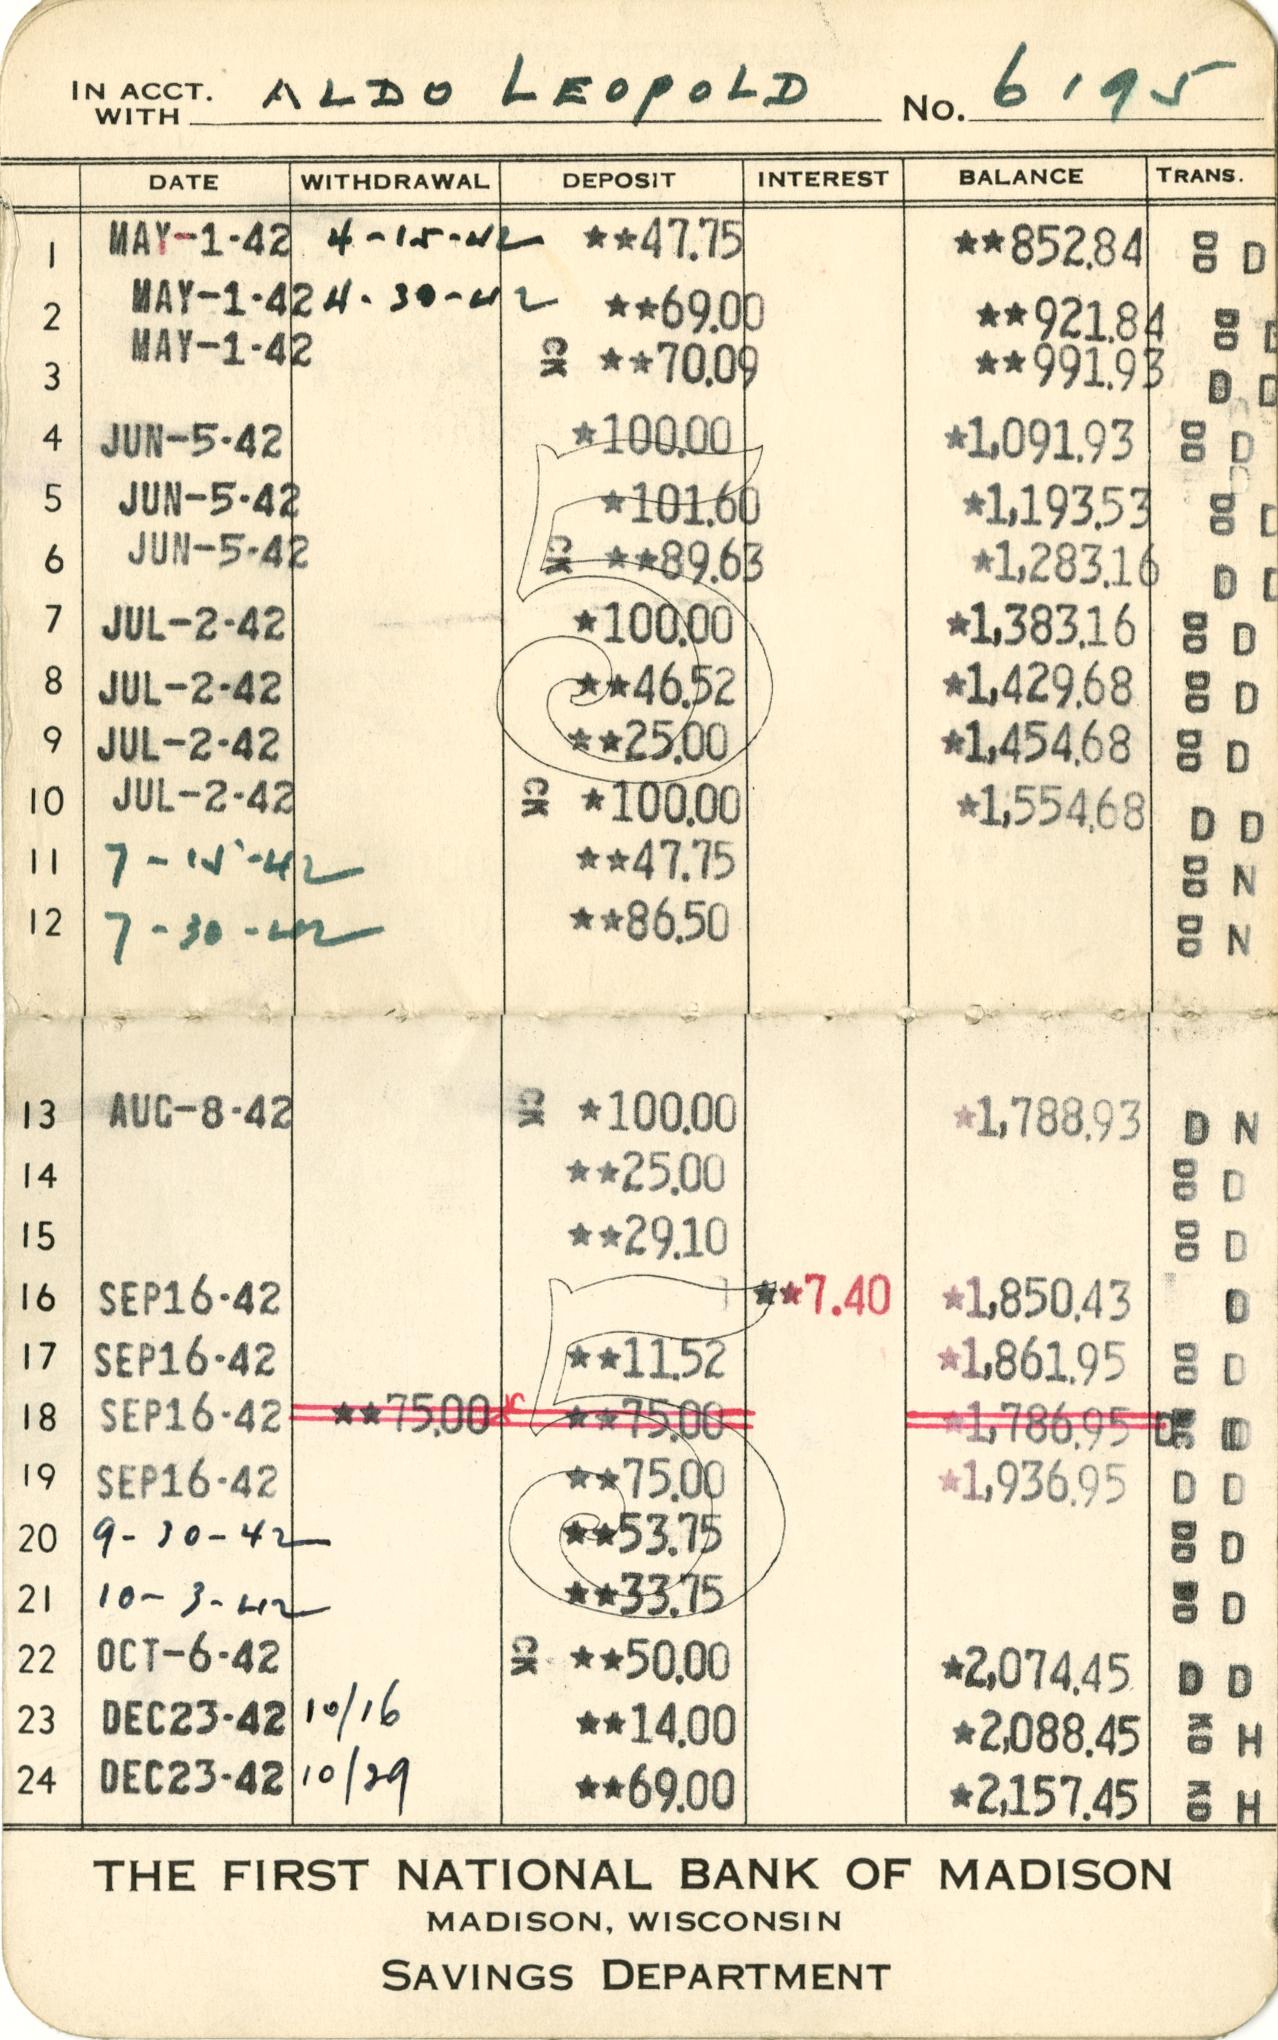 IN ACCT. WITH ALDO LEOPOLD No. 6195
DATE WITHDRAWAL DEPOSIT INTEREST BALANCE TRANS.
1 MAY-1-42 4-15-42 **47.75 **852.84 DD D
2 MAY-1-42 4-30-42 **69.00 **921.84 DD D
3 MAY-1-42 CK **70.09 **991.93 D D
4 JUN-5-42 *100.00 *1,091.93 DD D
5 JUN-5-42 *101.60 *1,193.53 DD D
6 JUN-5-42 CK **89.63 *1,283.16 D D
7 JUL-2-42 *100.00 *1,383.16 DD D
8 JUL-2-42 **46.52 *1,429.68 DD D
9 JUL-2-42 **25.00 *1,454.68 DD D
10 JUL-2-42 CK *100.00 *1,554.68 D D
11 7-15-42 **47.75 DD N
12 7-30-42 **86.50 DD N
13 AUG-8-42 CK *100.00 *1,788.93 D N
14 **25.00 DD D
15 **29.10 DD D
16 SEP16-42 **7.40 *1,850.43 D
17 SEP16-42 **11.52 *1,861.95 DD D
18 SEP16-42 **75.00 **75.00 *1,786.95 D
19 SEP16-42 **75.00 *1,936.95 D D
20 9-30-42 **53.75 DD D
21 10-3-42 **33.75 DD D
22 OCT-6-42 CK **50.00 *2,074.45 D D
23 DEC23-42 10/16 **14.00 *2,088.45 KD H
24 DEC23-42 10/29 **69.00 *2,157.45 KD H
5
5
THE FIRST NATIONAL BANK OF MADISON
MADISON, WISCONSIN
SAVINGS DEPARTMENT